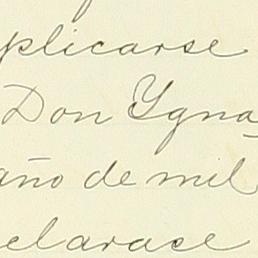 plicarse
Don Ygna
año de mil
elarase